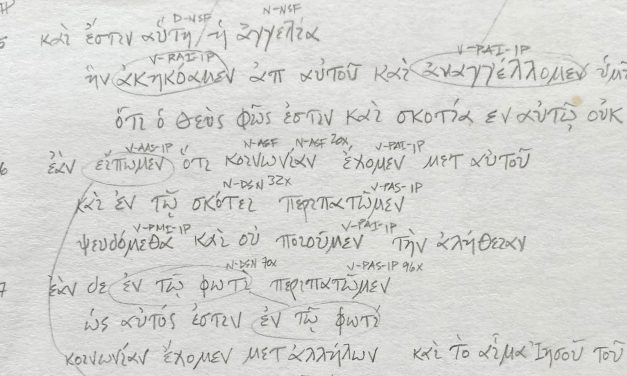 D-NSF N-NSF
5 καὶ ἔστιν αὕτη ἡ ἀγγελία
V-RAI-1P V-PAI-1P
ἣν ἀκηκόαμεν ἀπ αὐτοῦ καὶ ἀναγγέλλομεν ὑμῖ
ὅτι ὁ θεὸς φῶς ἐστιν καὶ σκοτία ἐν αὐτῷ οὐκ
V-AAS-1P N-ASF N-ASF 20x V-PAI-1P
6 ἐὰν εἴπωμεν ὅτι κοινωνίαν ἔχομεν μετ αὐτοῦ
N-DSN 32x V-PAS-1P
καὶ ἐν τῷ σκότει περιπατῶμεν
V-PMI-1P V-PAI-1P
ψευδόμεθα καὶ οὐ ποιοῦμεν τὴν ἀλήθειαν
N-DSN 70x V-PAS-1P 96x
7 ἐὰν δε ἐν τῷ φωτὶ περιπατῶμεν
ὡς αὐτός ἐστιν ἐν τῷ φωτί
κοινωνίαν ἔχομεν μετ ἀλλήλων καὶ τὸ αἷμα Ἰησοῦ τοῦ